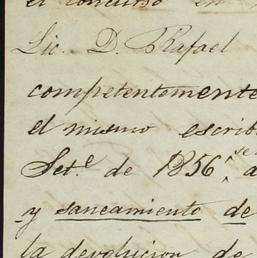 el concurso en
Lic. D. Rafael
competentemente
el mismo escrib
Set.e de 1856, a
y saneamiento de
la devolucion de